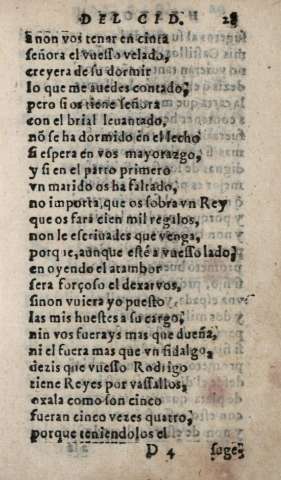 DEL CID. 28
a non vos tener en cinta
señora el vuesso velado,
creyera de su dormir
lo que me auedes contado,
pero si os tiene señora
con el brial leuantado,
nõ se ha dormido en el lecho
si espera en vos mayorazgo,
y si en el parto primero
vn marido os ha faltado,
no importa, que os sobra vn Rey
que os fara cien mil regalos,
non le escriuades que venga,
porque, aunque esté a vuesso lado,
en oyendo el atambor
sera forçoso el dexarvos,
sinon vuiera yo puesto
las mis huestes a su cargo,
nin vos fuerays mas que dueña,
ni el fuera mas que vn fidalgo,
dezis que vuesso Rodrigo
tiene Reyes por vassallos,
oxala como son cinco
fueran cinco vezes quatro,
porque teniendolos el
D 4 suge-